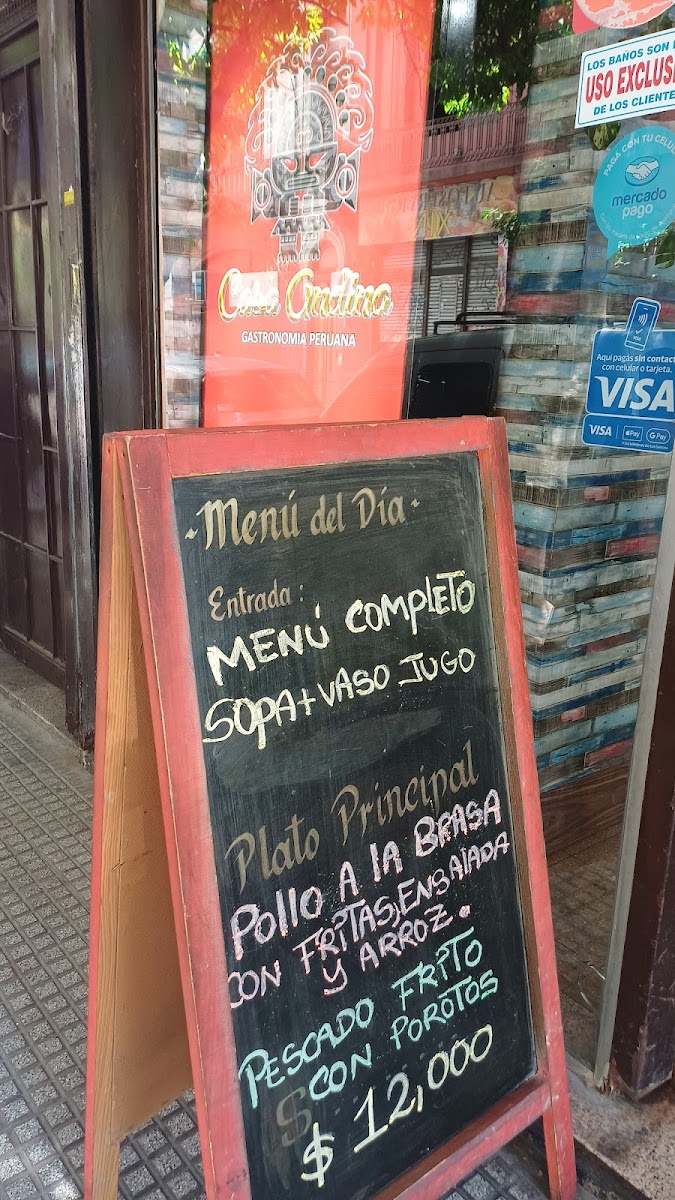 Casa Andina
GASTRONOMIA PERUANA
LOS BAÑOS SON
USO EXCLUSI
DE LOS CLIENTE
PAGÁ CON TU CELULAR
mercado
pago
VISA
Aquí pagás sin contacto
con celular o tarjeta.
VISA
VISA Pay G Pay
~Menú del Día~
Entrada:
MENÚ COMPLETO
SOPA+VASO JUGO
Plato Principal
POLLO A LA BRASA
CON FRITAS, ENSALADA
Y ARROZ.
PESCADO FRITO
CON POROTOS
$
$12,000